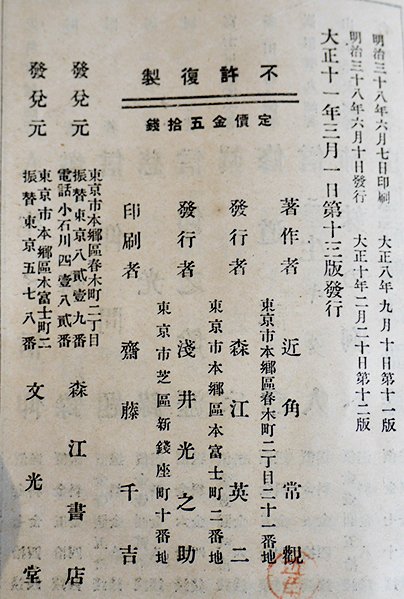 明治三十八年六月七日印刷
明治三十八年六月十日發行
大正八年九月十日第十一版
大正十年二月二十日第十二版
大正十一年三月一日第十三版發行
不許復製
定價金五拾錢
著作者 近角常觀
東京市本鄉區春木町二丁目二十一番地
發行者 森江英二
東京市本鄉區本富士町二番地
發行者 淺井光之助
東京市芝區新錢座町十番地
印刷者 齋藤千吉
發兌元
東京市本鄉區春木町二丁目
振替東京八貳壹九番
電話小石川四壹八貳番
森江書店
發兌元
東京市本鄉區本富士町二
振替東京五七八番
文光堂